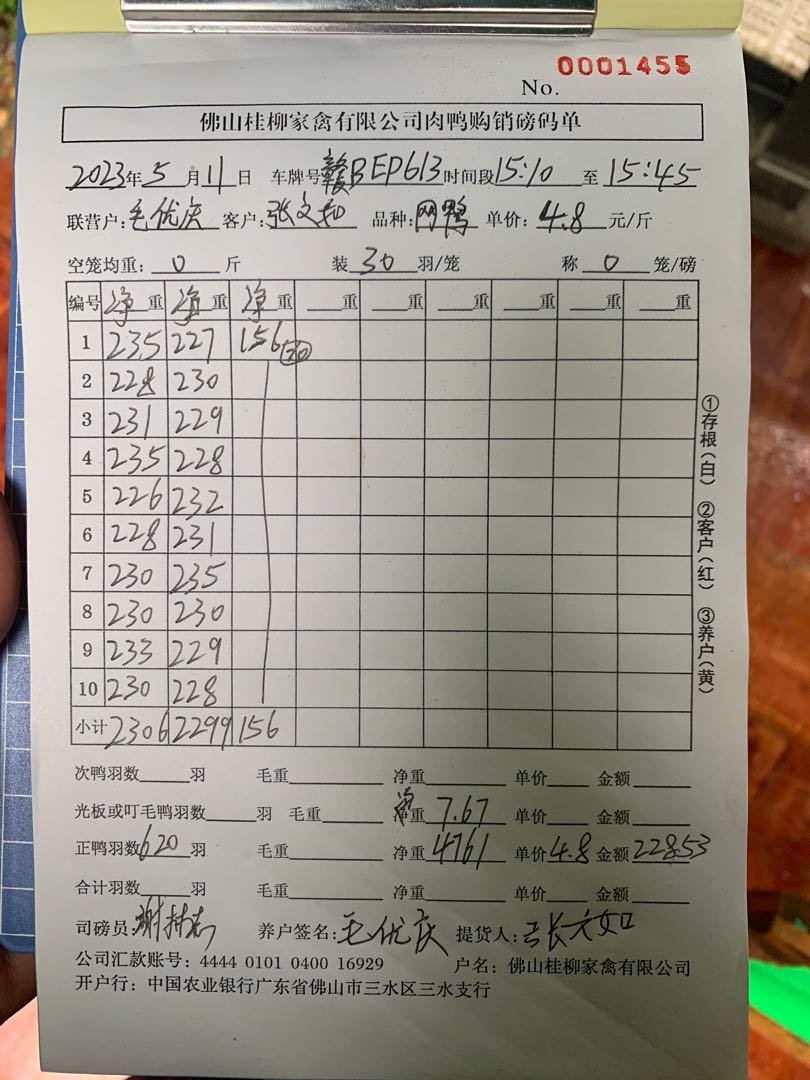 No. 0001455
佛山桂柳家禽有限公司肉鸭购销磅码单
2023年5月11日 车牌号赣BEP613时间段15:10至15:45
联营户:毛优庆 客户:张文如 品种:网鸭 单价:4.8元/斤
空笼均重:0斤 装30羽/笼 称0笼/磅
编号 净重 净重 净重 重 重 重 重 重 重
1 235 227 156 (20)
2 228 230
3 231 229
4 235 228
5 226 232
6 228 231
7 230 235
8 230 230
9 233 229
10 230 228
小计 2306 2299 156
①存根(白) ②客户(红) ③养户(黄)
次鸭羽数 羽 毛重 净重 单价 金额
光板或叮毛鸭羽数 羽 毛重 重 7.67 单价 金额
正鸭羽数620羽 毛重 净重4761 单价4.8 金额22853
合计羽数 羽 毛重 净重 单价 金额
司磅员: 养户签名:毛优庆 提货人:张文如
公司汇款账号:4444 0101 0400 16929 户名:佛山桂柳家禽有限公司
开户行:中国农业银行广东省佛山市三水区三水支行